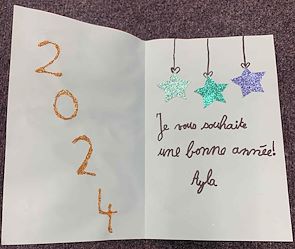 2
0
2
4
Je vous souhaite
une bonne année!
Ayla